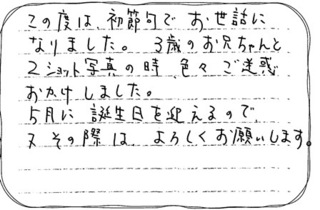 この度は、初節句でお世話に
なりました。 3歳のお兄ちゃんと
2ショット写真の時、色々ご迷惑
おかけしました。
5月に誕生日を迎えるので、
又その際は、よろしくお願いします。